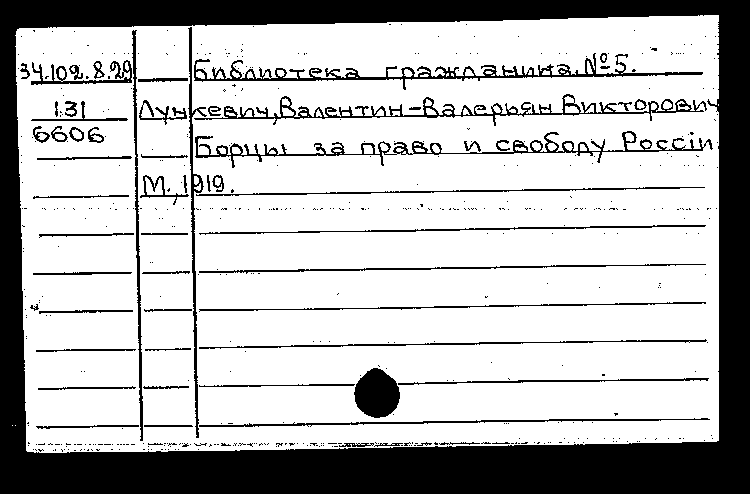 34.102.8.29 Библиотека гражданина. №5.
131 Лункевич, Валентин-Валерьян Викторович
6606 Борцы за право и свободу Россіи.
М., 1919.